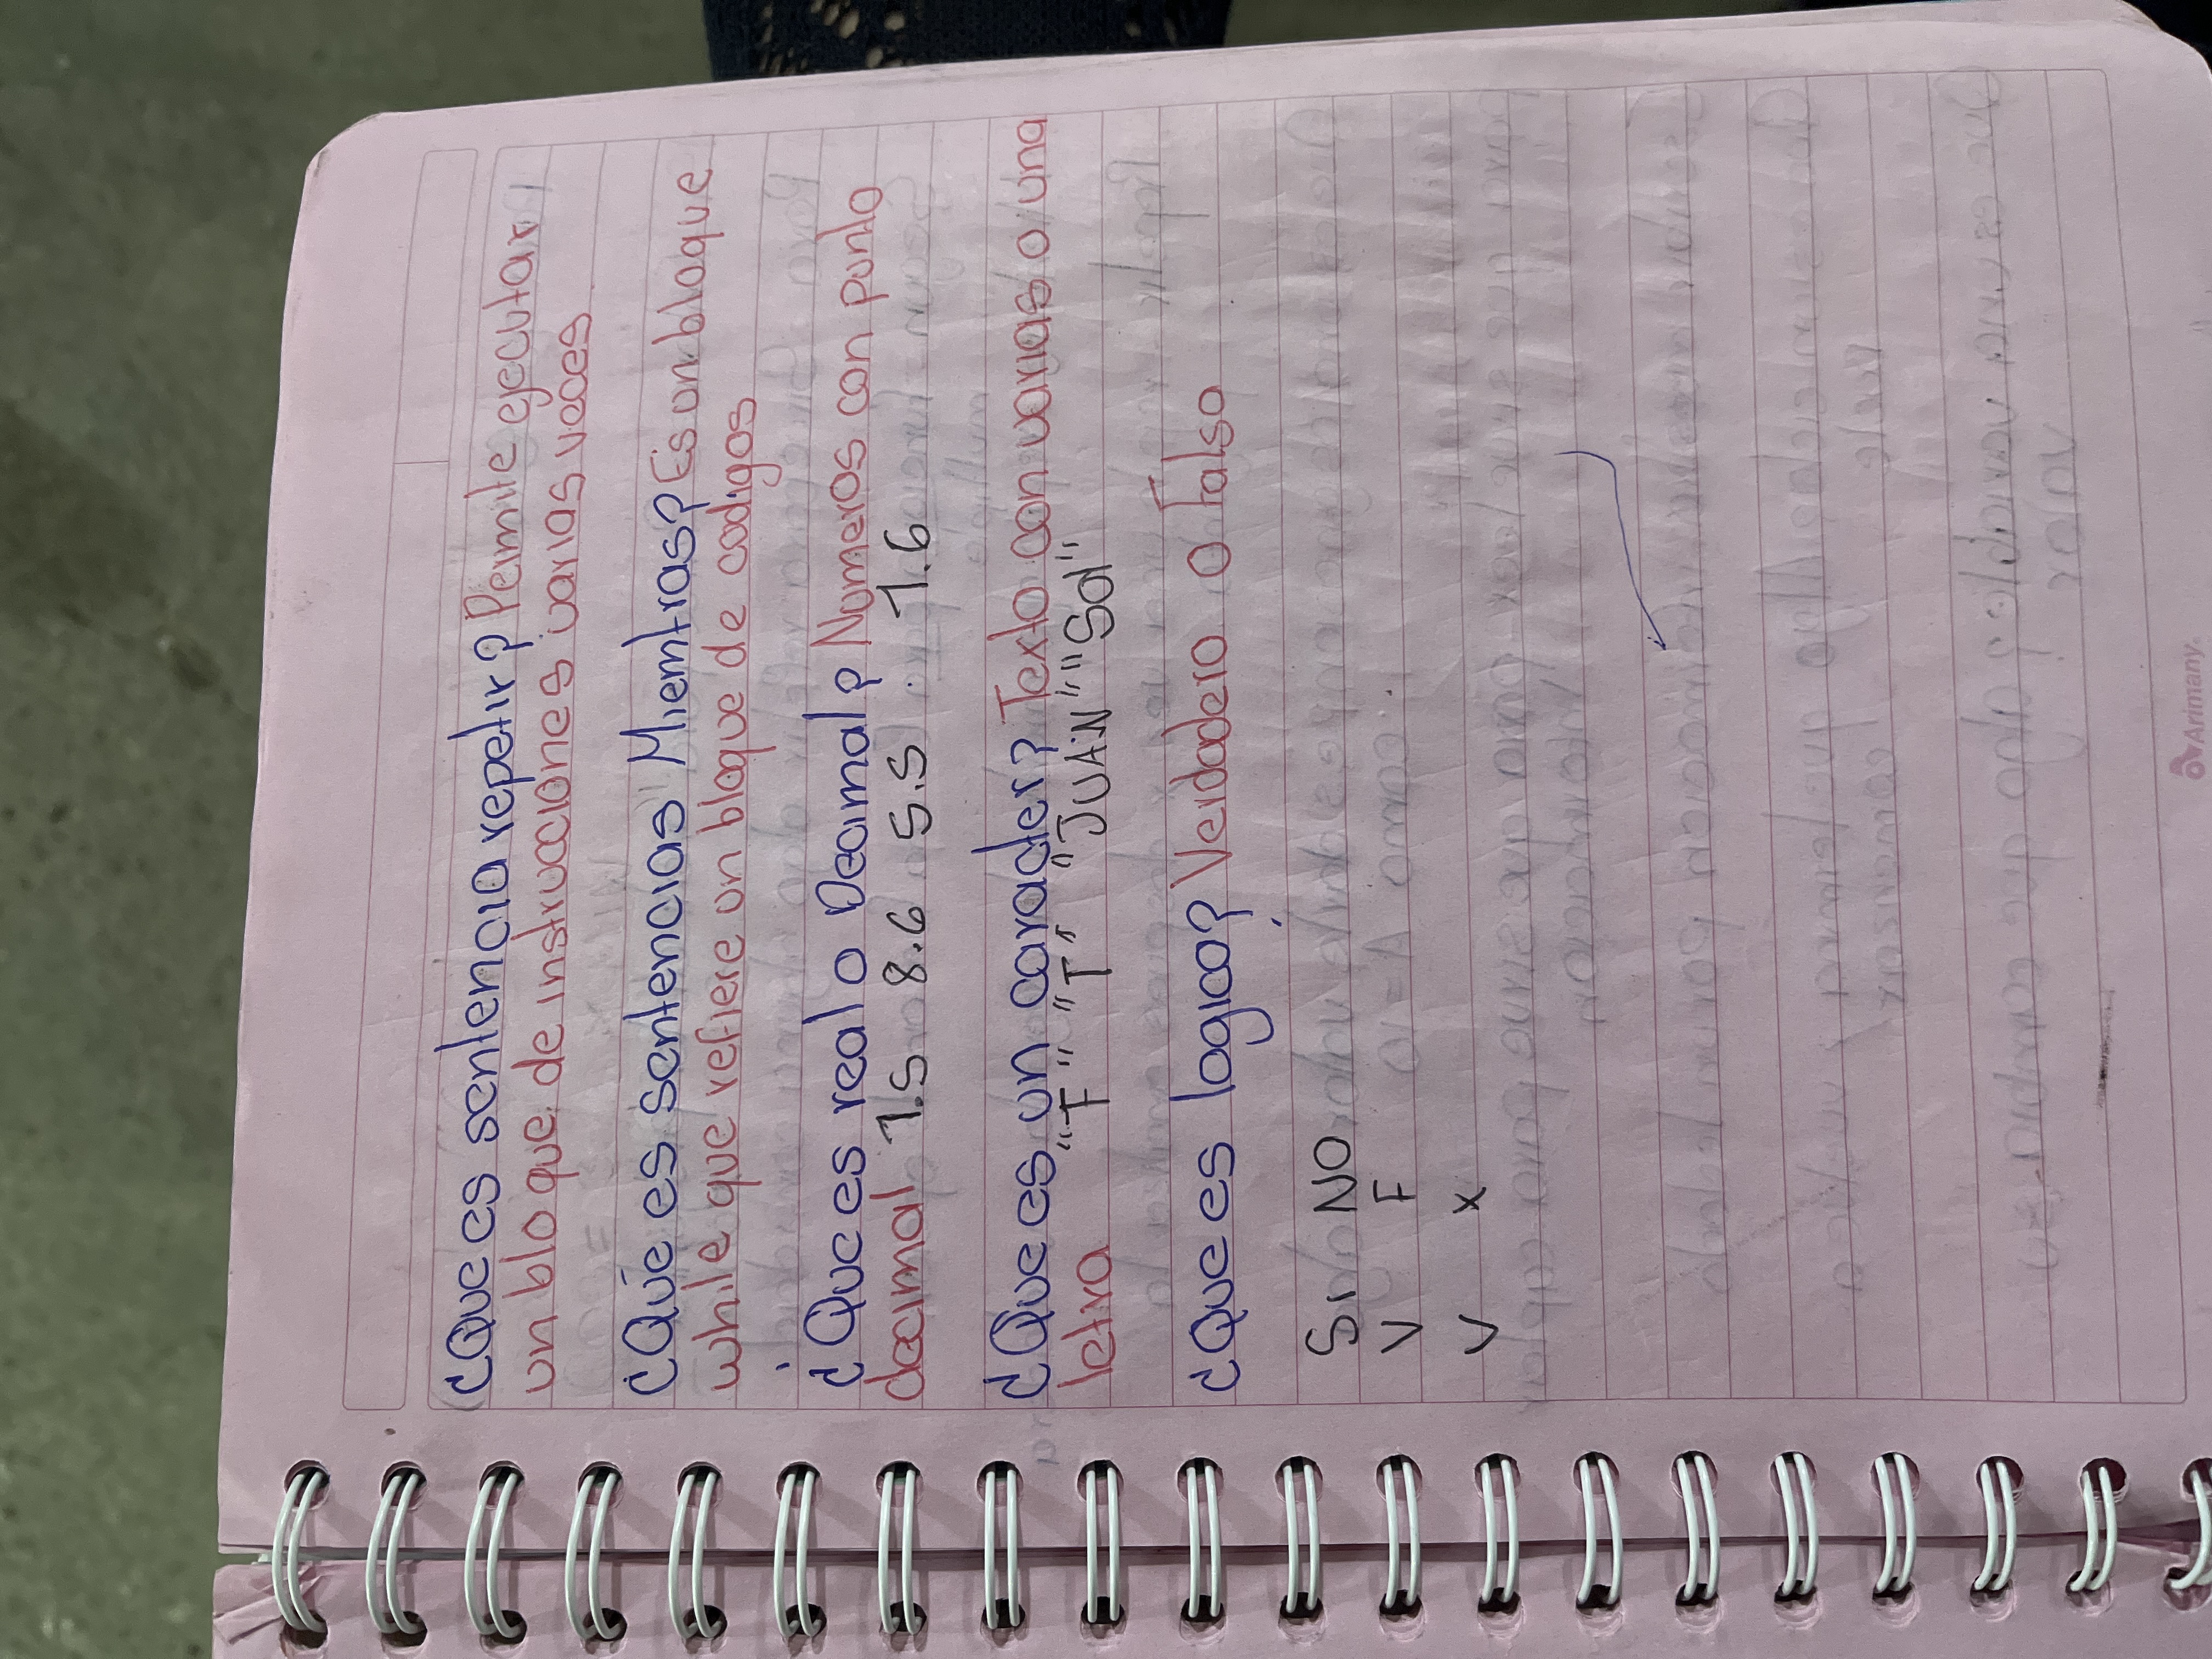 ¿Que es sentencia repetir? Permite ejecutar
un blo que de instrucciones varias veces
¿Qúe es sentencias Mientras? Es un bloque
while que refiere un bloque de codigos
¿Que es real o Decimal? Numeros con punto
decimal 1.5 8.6 5.5 1.6
¿Que es un caracter? Texto con varias o una
letra "F" "T" "JUAN" "Sol"
¿Que es logico? Verdadero o Falso
Si NO
V F
V x
Arimany